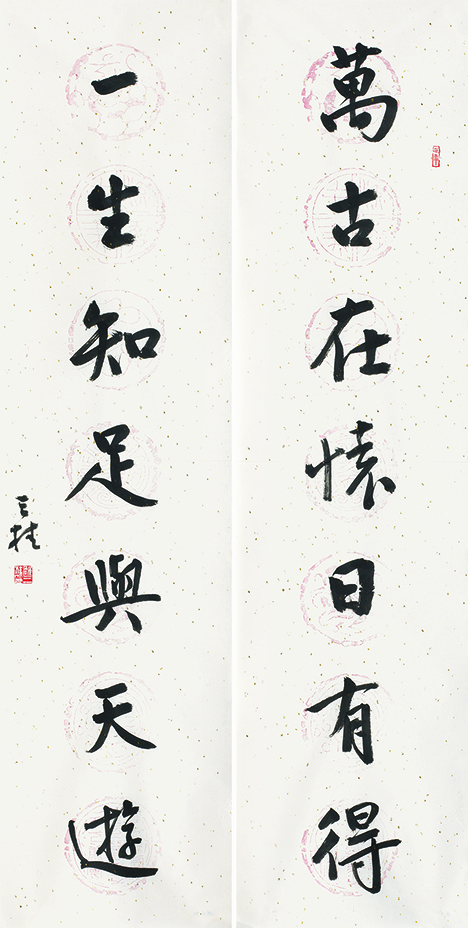 萬古在懷日有得
一生知足與天遊